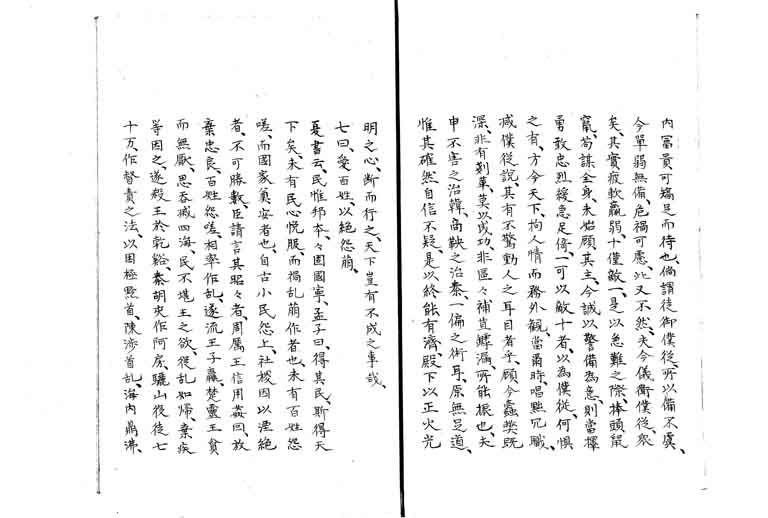 内冨貴可矯足而待也、倘謂徒御僕從、所以備不虞、
今單弱無備、危禍可慮、此又不然、夫今儀衛僕從、衆
矣、其實疲軟羸弱、十僅敵一、是以急難之際、捧頭鼠
竄、苟謀全身、未始顧其主、今誠以警備為急、則當擇
勇敢忠烈緩急足倚、一可以敵十者、以為僕從、何惧
之有、方今天下、拘人情而務外觀、當爾時、唱黜冗職、
减僕從說、其有不驚動人之耳目者乎、顧今蠹獘既
深、非有剗革、莫以成功、非區々補苴罅漏、所能根也、夫
申不害之治韓、商鞅之治秦、一偏之術耳、原無足道、
惟其確然自信不疑、是以終能有濟、殿下以正大光
明之心、断而行之、天下豈有不成之事哉、
七曰、愛百姓、以絕怨萠、
夏書云、民惟邦本、々固國寧、孟子曰、得其民、斯得天
下矣、未有民心悅服、而禍乱萠作者也、未有百姓怨
嗟、而國家奠安者也、自古小民怨上、社稷因以湮絕
者、不可勝數、臣請言其昭々者、周厲王信用姦回、放
棄忠良、百姓怨嗟、相率作乱、遂流王于彘、楚靈王貪
而無厭、思吞滅四海、民不堪王之欲、從乱如帰、棄疾
等因之、遂殺王於乾谿、秦胡亥作阿房、驪山役徒七
十万、作督責之法、以困極黔首、陳涉首乱、海内鼎沸、